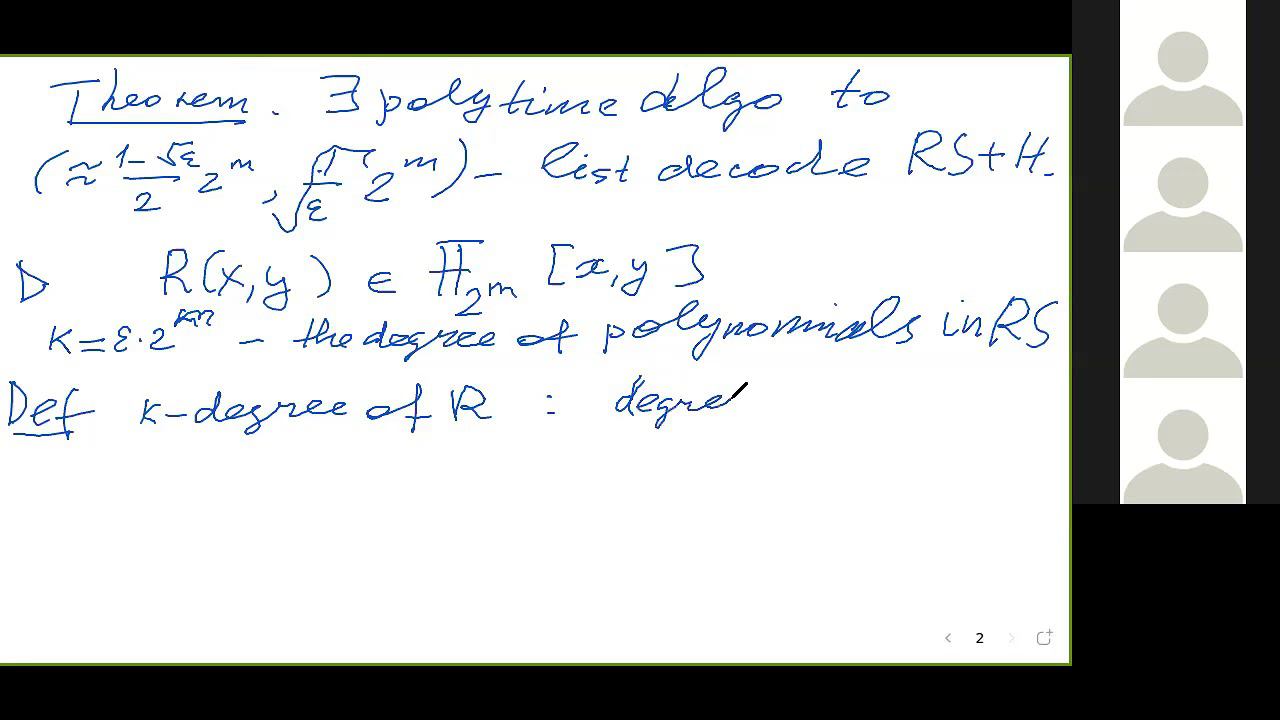 Theorem. ∃ polytime algo to
(≈ (1-√ε)/2 2^m, √(1/ε) 2^m) - list decode RS+H.
▷ R(x,y) ∈ 𝔽_{2^m} [x,y]
k=ε·2^m - the degree of polynomials in RS
Def k-degree of R : degre
2